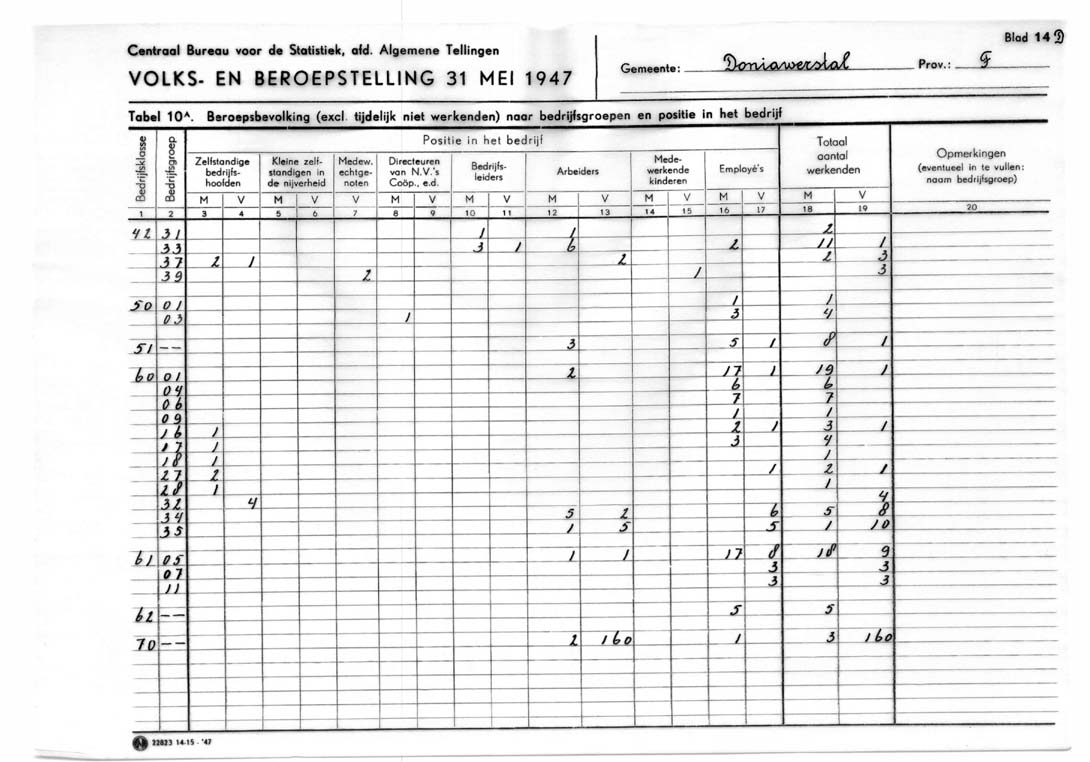 Blad 14 D
Centraal Bureau voor de Statistiek, afd. Algemene Tellingen
VOLKS- EN BEROEPSTELLING 31 MEI 1947
Gemeente: Doniawerstal Prov.: F
Tabel 10A. Beroepsbevolking (excl. tijdelijk niet werkenden) naar bedrijfsgroepen en positie in het bedrijf
Bedrijfsklasse Bedrijfsgroep Positie in het bedrijf Totaal aantal werkenden Opmerkingen (eventueel in te vullen: naam bedrijfsgroep)
Zelfstandige bedrijfs-hoofden Kleine zelf-standigen in de nijverheid Medew. echtge-noten Directeuren van N.V.'s Coöp., e.d. Bedrijfs-leiders Arbeiders Mede-werkende kinderen Employé's
M V M V V M V M V M V M V M V M V
1 2 3 4 5 6 7 8 9 10 11 12 13 14 15 16 17 18 19 20
42 31 1 1 2
33 3 1 6 2 11 1
37 2 1 2 2 3
39 2 1 3
50 01 1 1
03 1 3 4
51 -- 3 5 1 8 1
60 01 2 17 1 19 1
04 6 6
06 7 7
09 1 1
16 1 2 1 3 1
17 1 3 4
18 1 1
27 2 1 2 1
28 1 1
32 4 4
34 5 2 6 5 8
35 1 5 5 1 10
61 05 1 1 17 8 18 9
07 3 3
11 3 3
62 -- 5 5
70 -- 2 160 1 3 160
22823 14-15 - '47